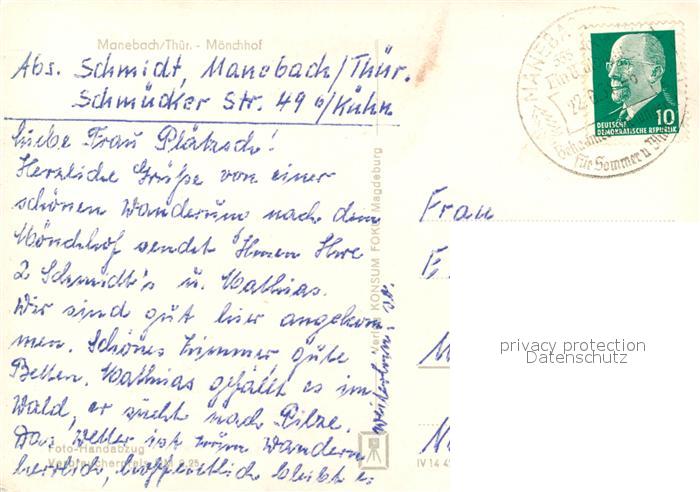 Manebach/Thür. - Mönchhof
Abs. Schmidt, Manebach/Thür.
Schmücker Str. 49 b/Kühn
Liebe Frau Plätzsch!
Herzliche Grüße von einer
schönen Wanderung nach dem
Mönchhof sendet Ihnen Ihre
2 Schmidt's u. Mathias.
Wir sind gut hier angekom
men. Schönes Zimmer, gute
Betten. Mathias gefällt es im
Wald, er sucht nach Pilze.
Das Wetter ist zum Wandern
herrlich, hoffentlich bleibt es
weiterhin so.
Foto-Handabzug
Verbraucherpreis
Verlag KONSUM FOKO Magdeburg
IV 14 4
Frau
MANEBA
22.
für Sommer u.
10
DEUTSCHE
DEMOKRATISCHE REPUBLIK
privacy protection
Datenschutz